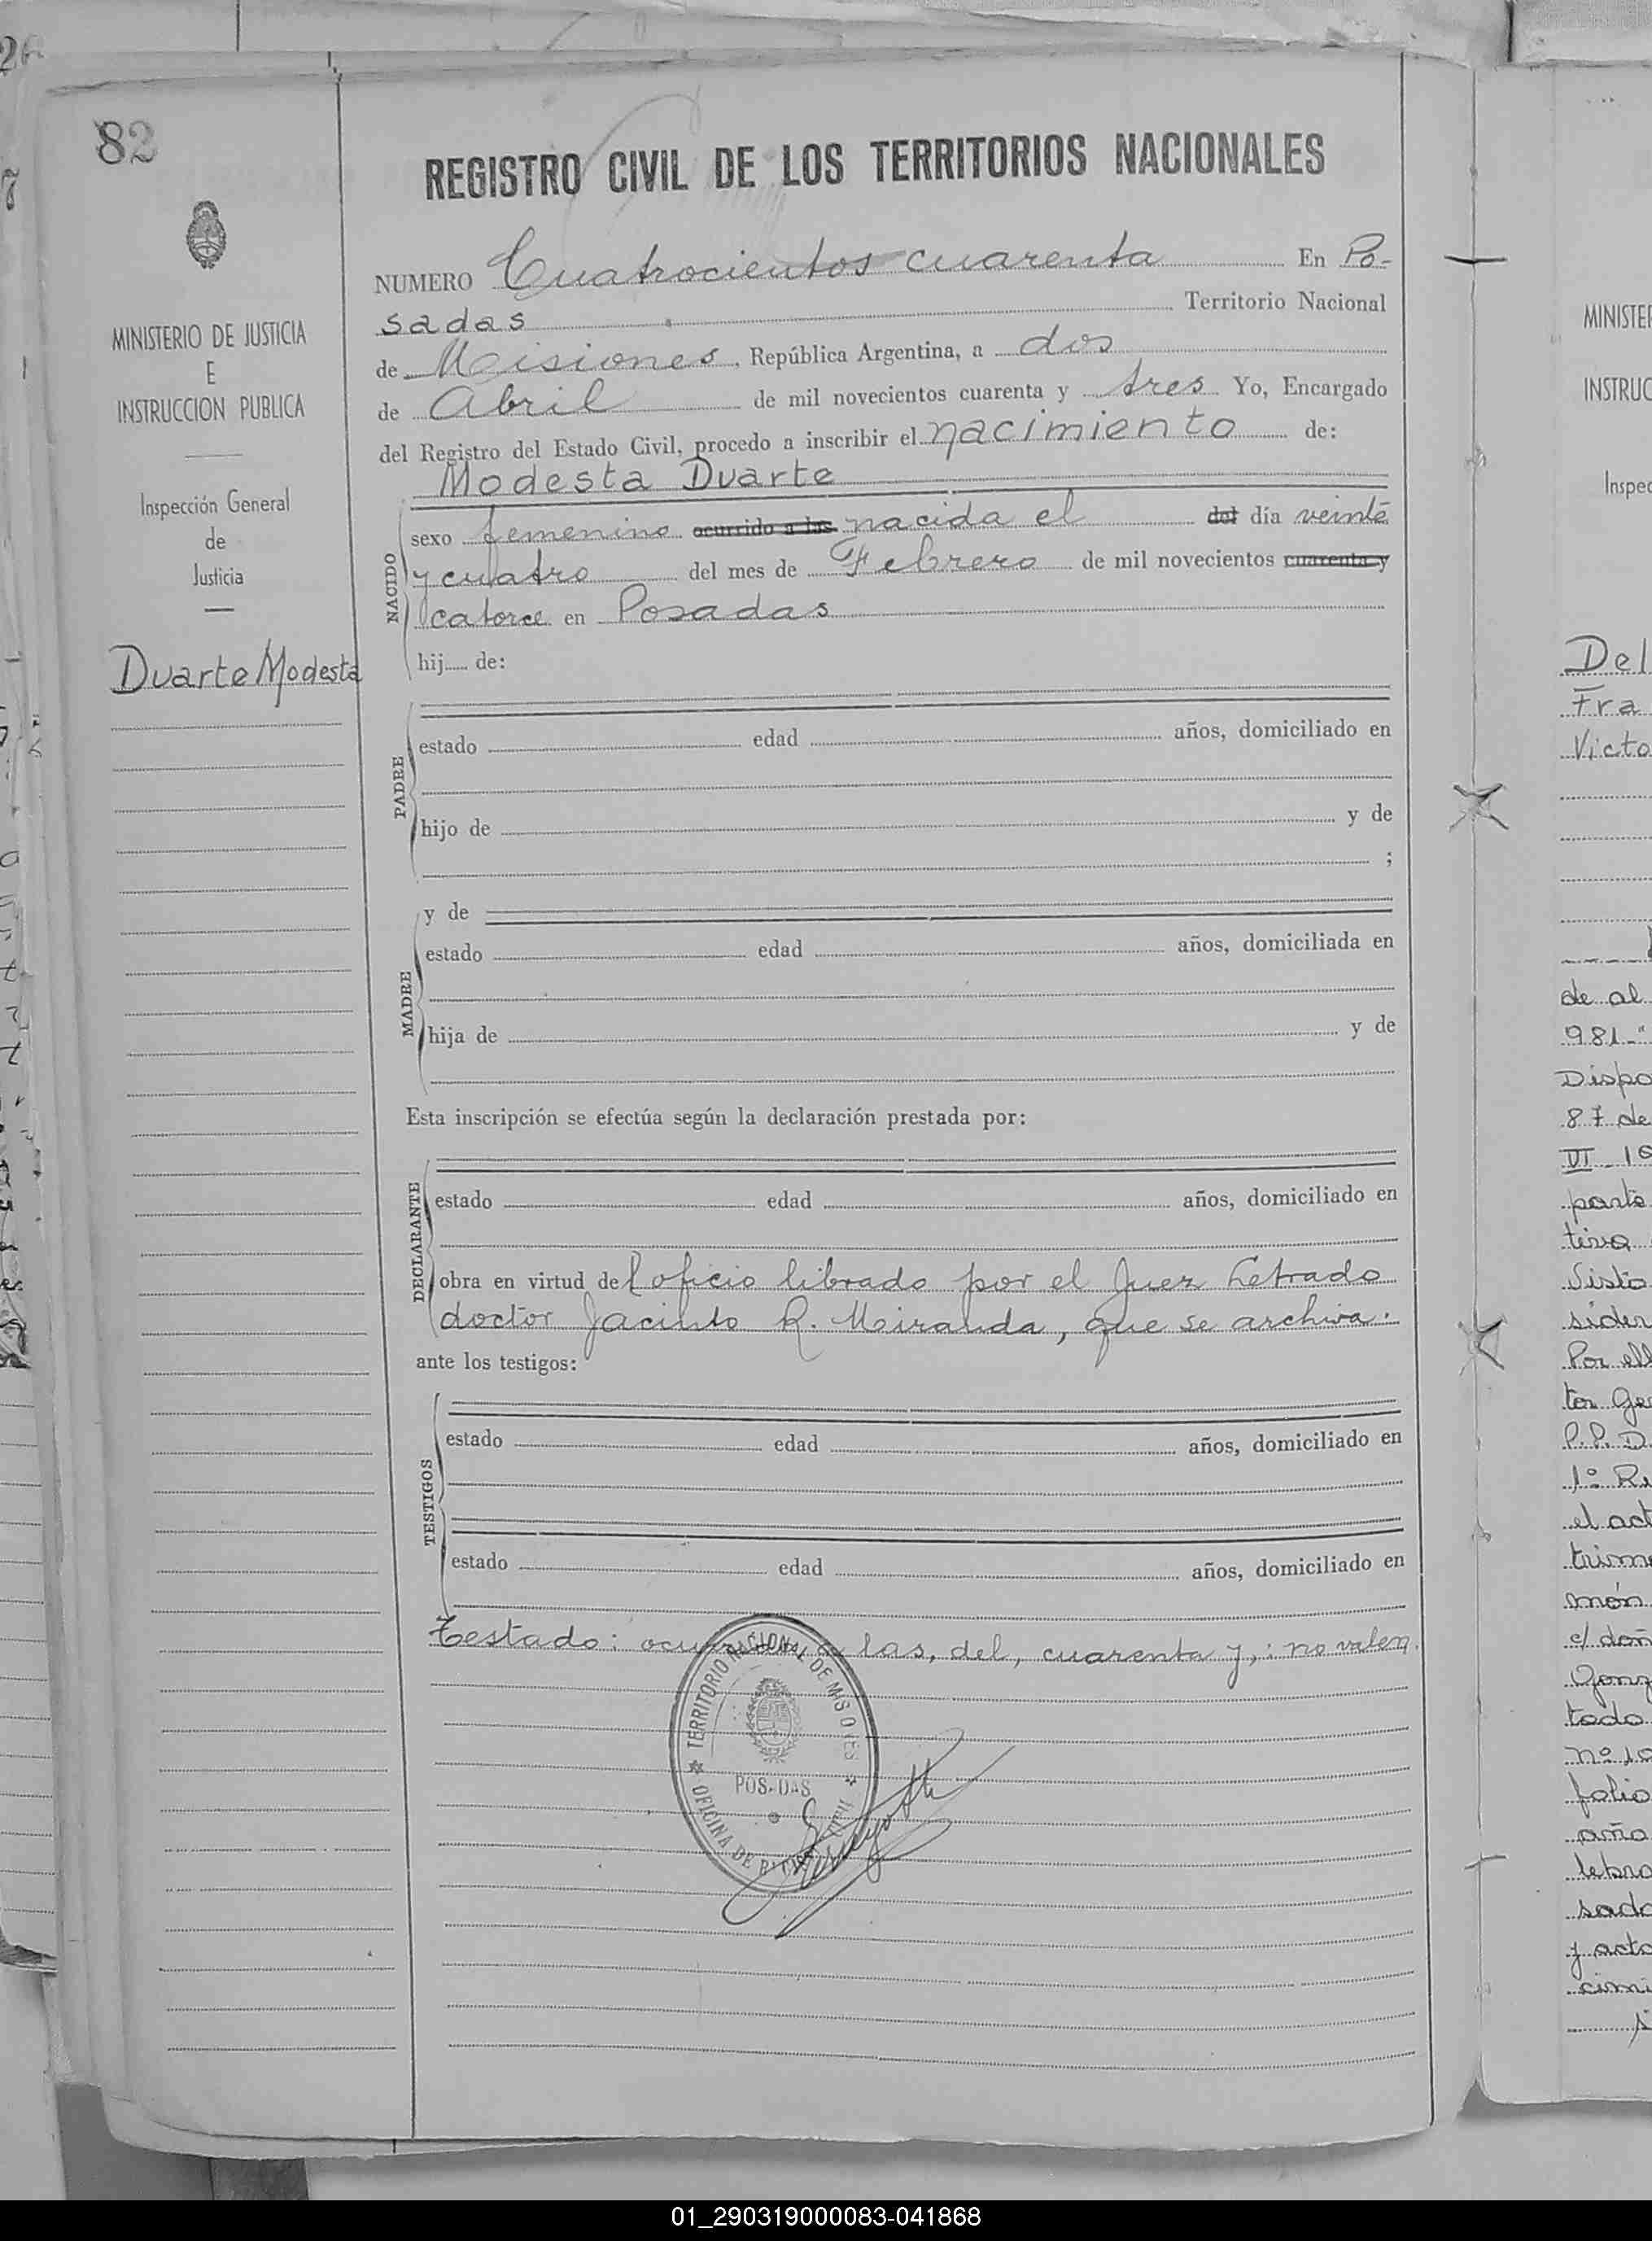 82
REGISTRO CIVIL DE LOS TERRITORIOS NACIONALES
MINISTERIO DE JUSTICIA
E
INSTRUCCION PUBLICA
Inspección General
de
Justicia
Duarte Modesta
NUMERO Cuatrocientos cuarenta En Po-
sadas Territorio Nacional
de Misiones, República Argentina, a dos
de Abril de mil novecientos cuarenta y tres Yo, Encargado
del Registro del Estado Civil, procedo a inscribir el nacimiento de:
Modesta Duarte
NACIDO
sexo femenino ocurrido a las nacida el del día veinte
y cuatro del mes de Febrero de mil novecientos cuarenta y
catorce en Posadas
hij de:
PADRE
estado edad años, domiciliado en
hijo de y de
;
y de
MADRE
estado edad años, domiciliada en
hija de y de
Esta inscripción se efectúa según la declaración prestada por:
DECLARANTE
estado edad años, domiciliado en
obra en virtud del oficio librado por el Juez Letrado
doctor Jacinto R. Miranda, que se archiva.
ante los testigos:
TESTIGOS
estado edad años, domiciliado en
estado edad años, domiciliado en
Testado: ocurrido a las, del, cuarenta y,: no valen.
TERRITORIO NACIONAL DE MISIONES
POSADAS
OFICINA DE
MINISTE
INSTRUC
Inspec
Del
Fra
Victo
de al
981-"
Dispo
87 de
VI-19
parte
tiva
Visto
sider
Por ell
tor Ge
P.P.D.
1º Re
el act
trim
món
c/ doñ
Gonz
tado
nº 10
folio
año
lebra
sada
y acto
cimi
01_290319000083-041868